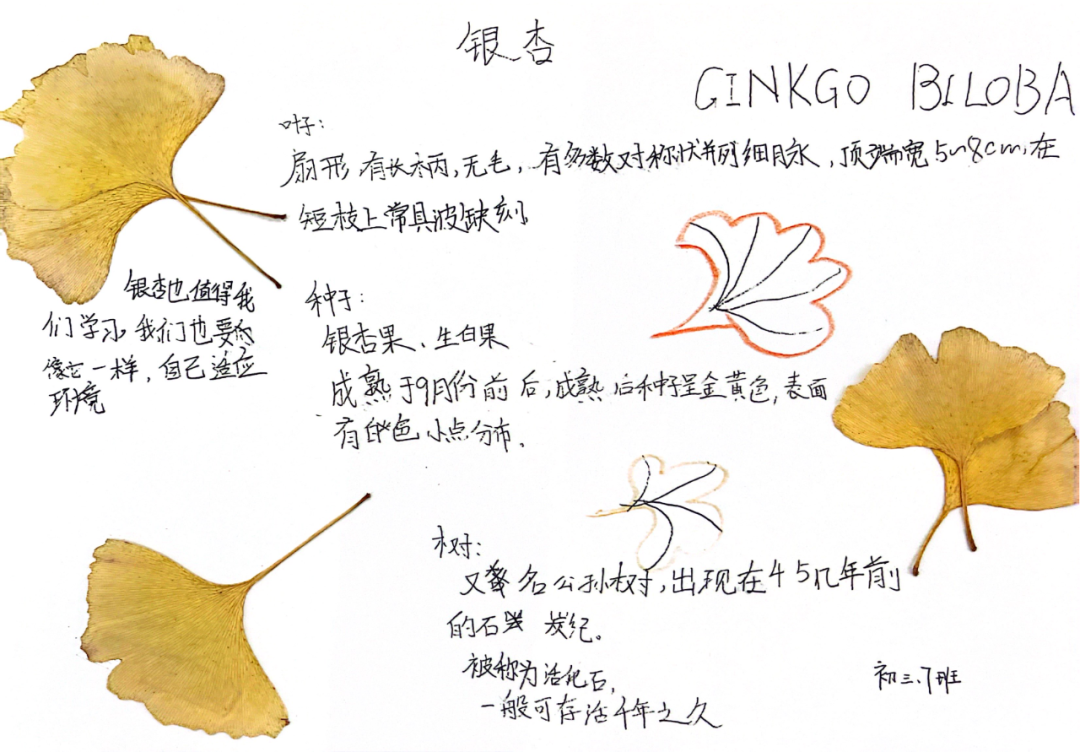 银杏
GINKGO BILOBA
叶子:
扇形,有长柄,无毛,有多数对称状并列细脉,顶端宽5~8cm,在
短枝上常具波缺刻
银杏也值得我
们学习,我们也要你
像它一样,自己适应
环境
种子:
银杏果、生白果
成熟于9月份前后,成熟后种子呈金黄色,表面
有白色小点分布.
树:
又名公孙树,出现在4 5亿年前
的石炭纪。
被称为活化石,
一般可存活千年之久
初三.7班